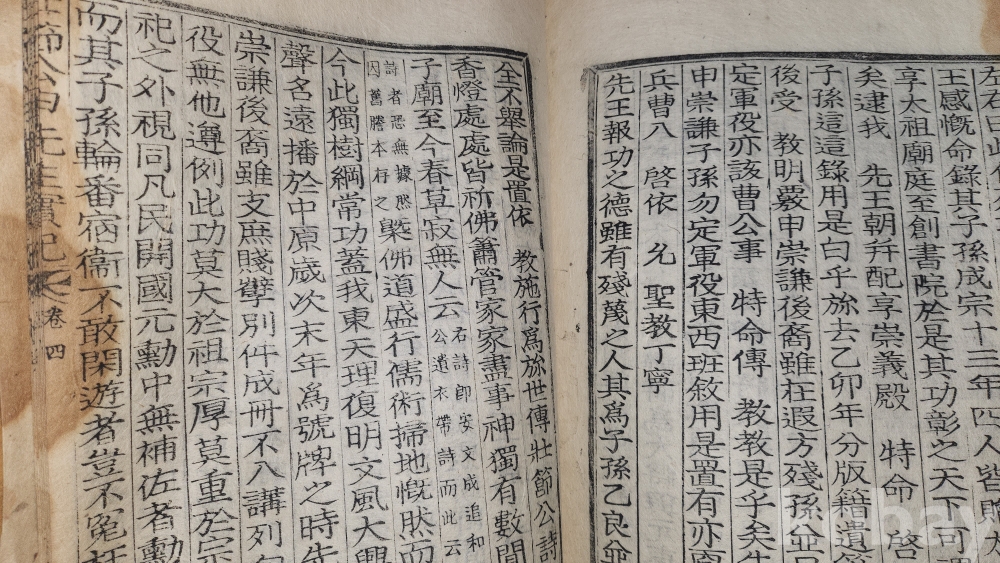 左右曰此
王感慨命錄其子孫成宗十三年四人皆
享太祖廟庭至創書院於是其功彰之天下可
矣逮我 先王朝幷配享崇義殿 特命 啓
子孫這這錄用是白乎旀去乙卯年分版籍遺
後受 教明覈申崇謙後裔雖在遐方殘孫並
定軍役亦該曹公事 特命傳 教教是乎矣
申崇謙子孫勿定軍役東西班敘用是置有亦
兵曹入 啓依 允 聖教丁寧
先王報功之德雖有殘蔑之人其爲子孫乙良並
全不擧論是置依 教施行爲旀世傳壯節公詩
香燈處處皆祈佛蕭管家家盡事神獨有數間
子廟至今春草寂無人云 石詩卽安文成追和
公遺衣帶詩而此云
詩者悉無據然
因舊謄本存之 槩佛道盛行儒術掃地慨然而
今此獨樹綱常功蓋我東天理復明文風大興
聲名遠播於中原歲次末年爲號牌之時先
崇謙後裔雖支庶賤孽別件成冊不入講列
役無他遵例此功莫大於祖宗厚莫重於宗
祀之外視同凡民開國元勳中無補佐者勳
而其子孫輪番宿衞不敢閑遊者豈不冤
壯節公申先生實記 卷四
kobay